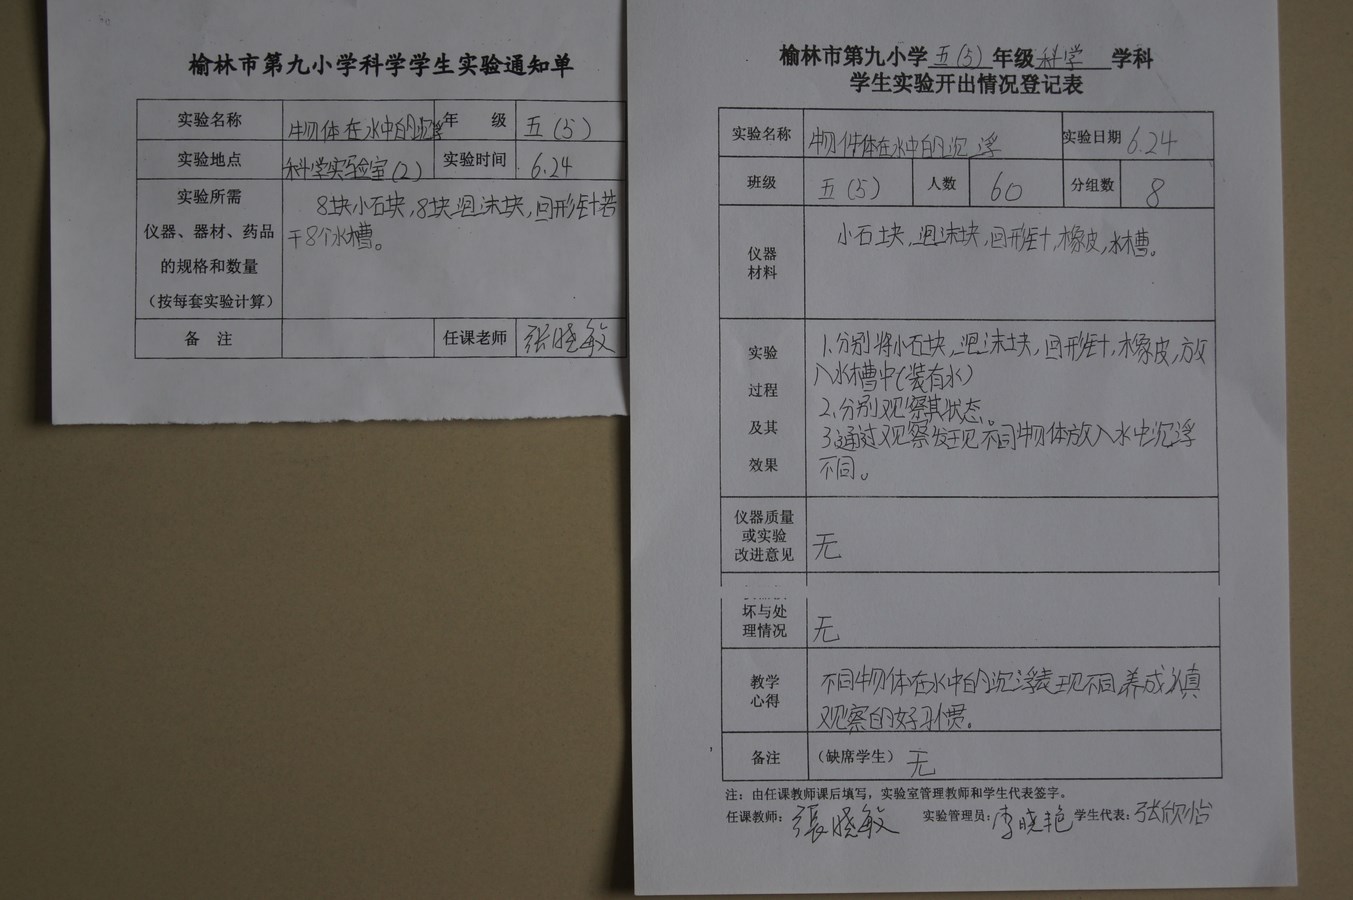 榆林市第九小学科学学生实验通知单
实验名称 物体在水中的沉浮 年 级 五(5)
实验地点 科学实验室(2) 实验时间 6.24
实验所需
仪器、器材、药品
的规格和数量
(按每套实验计算)
8块小石块,8块泡沫块,回形针若
干8个水槽。
备 注 任课老师 张晓敏
榆林市第九小学五(5)年级科学学科
学生实验开出情况登记表
实验名称 物体在水中的沉浮 实验日期 6.24
班级 五(5) 人数 60 分组数 8
仪器
材料
小石块,泡沫块,回形针,橡皮,水槽。
实验
过程
及其
效果
1.分别将小石块,泡沫块,回形针,橡皮,放
入水槽中(装有水)
2.分别观察其状态。
3.通过观察发现不同物体放入水中沉浮
不同。
仪器质量
或实验
改进意见
无
坏与处
理情况
无
教学
心得
不同物体在水中的沉浮表现不同,养成认真
观察的好习惯。
备注 (缺席学生) 无
注:由任课教师课后填写,实验室管理教师和学生代表签字。
任课教师:張晓敏 实验管理员:李晓艳 学生代表:张欣怡